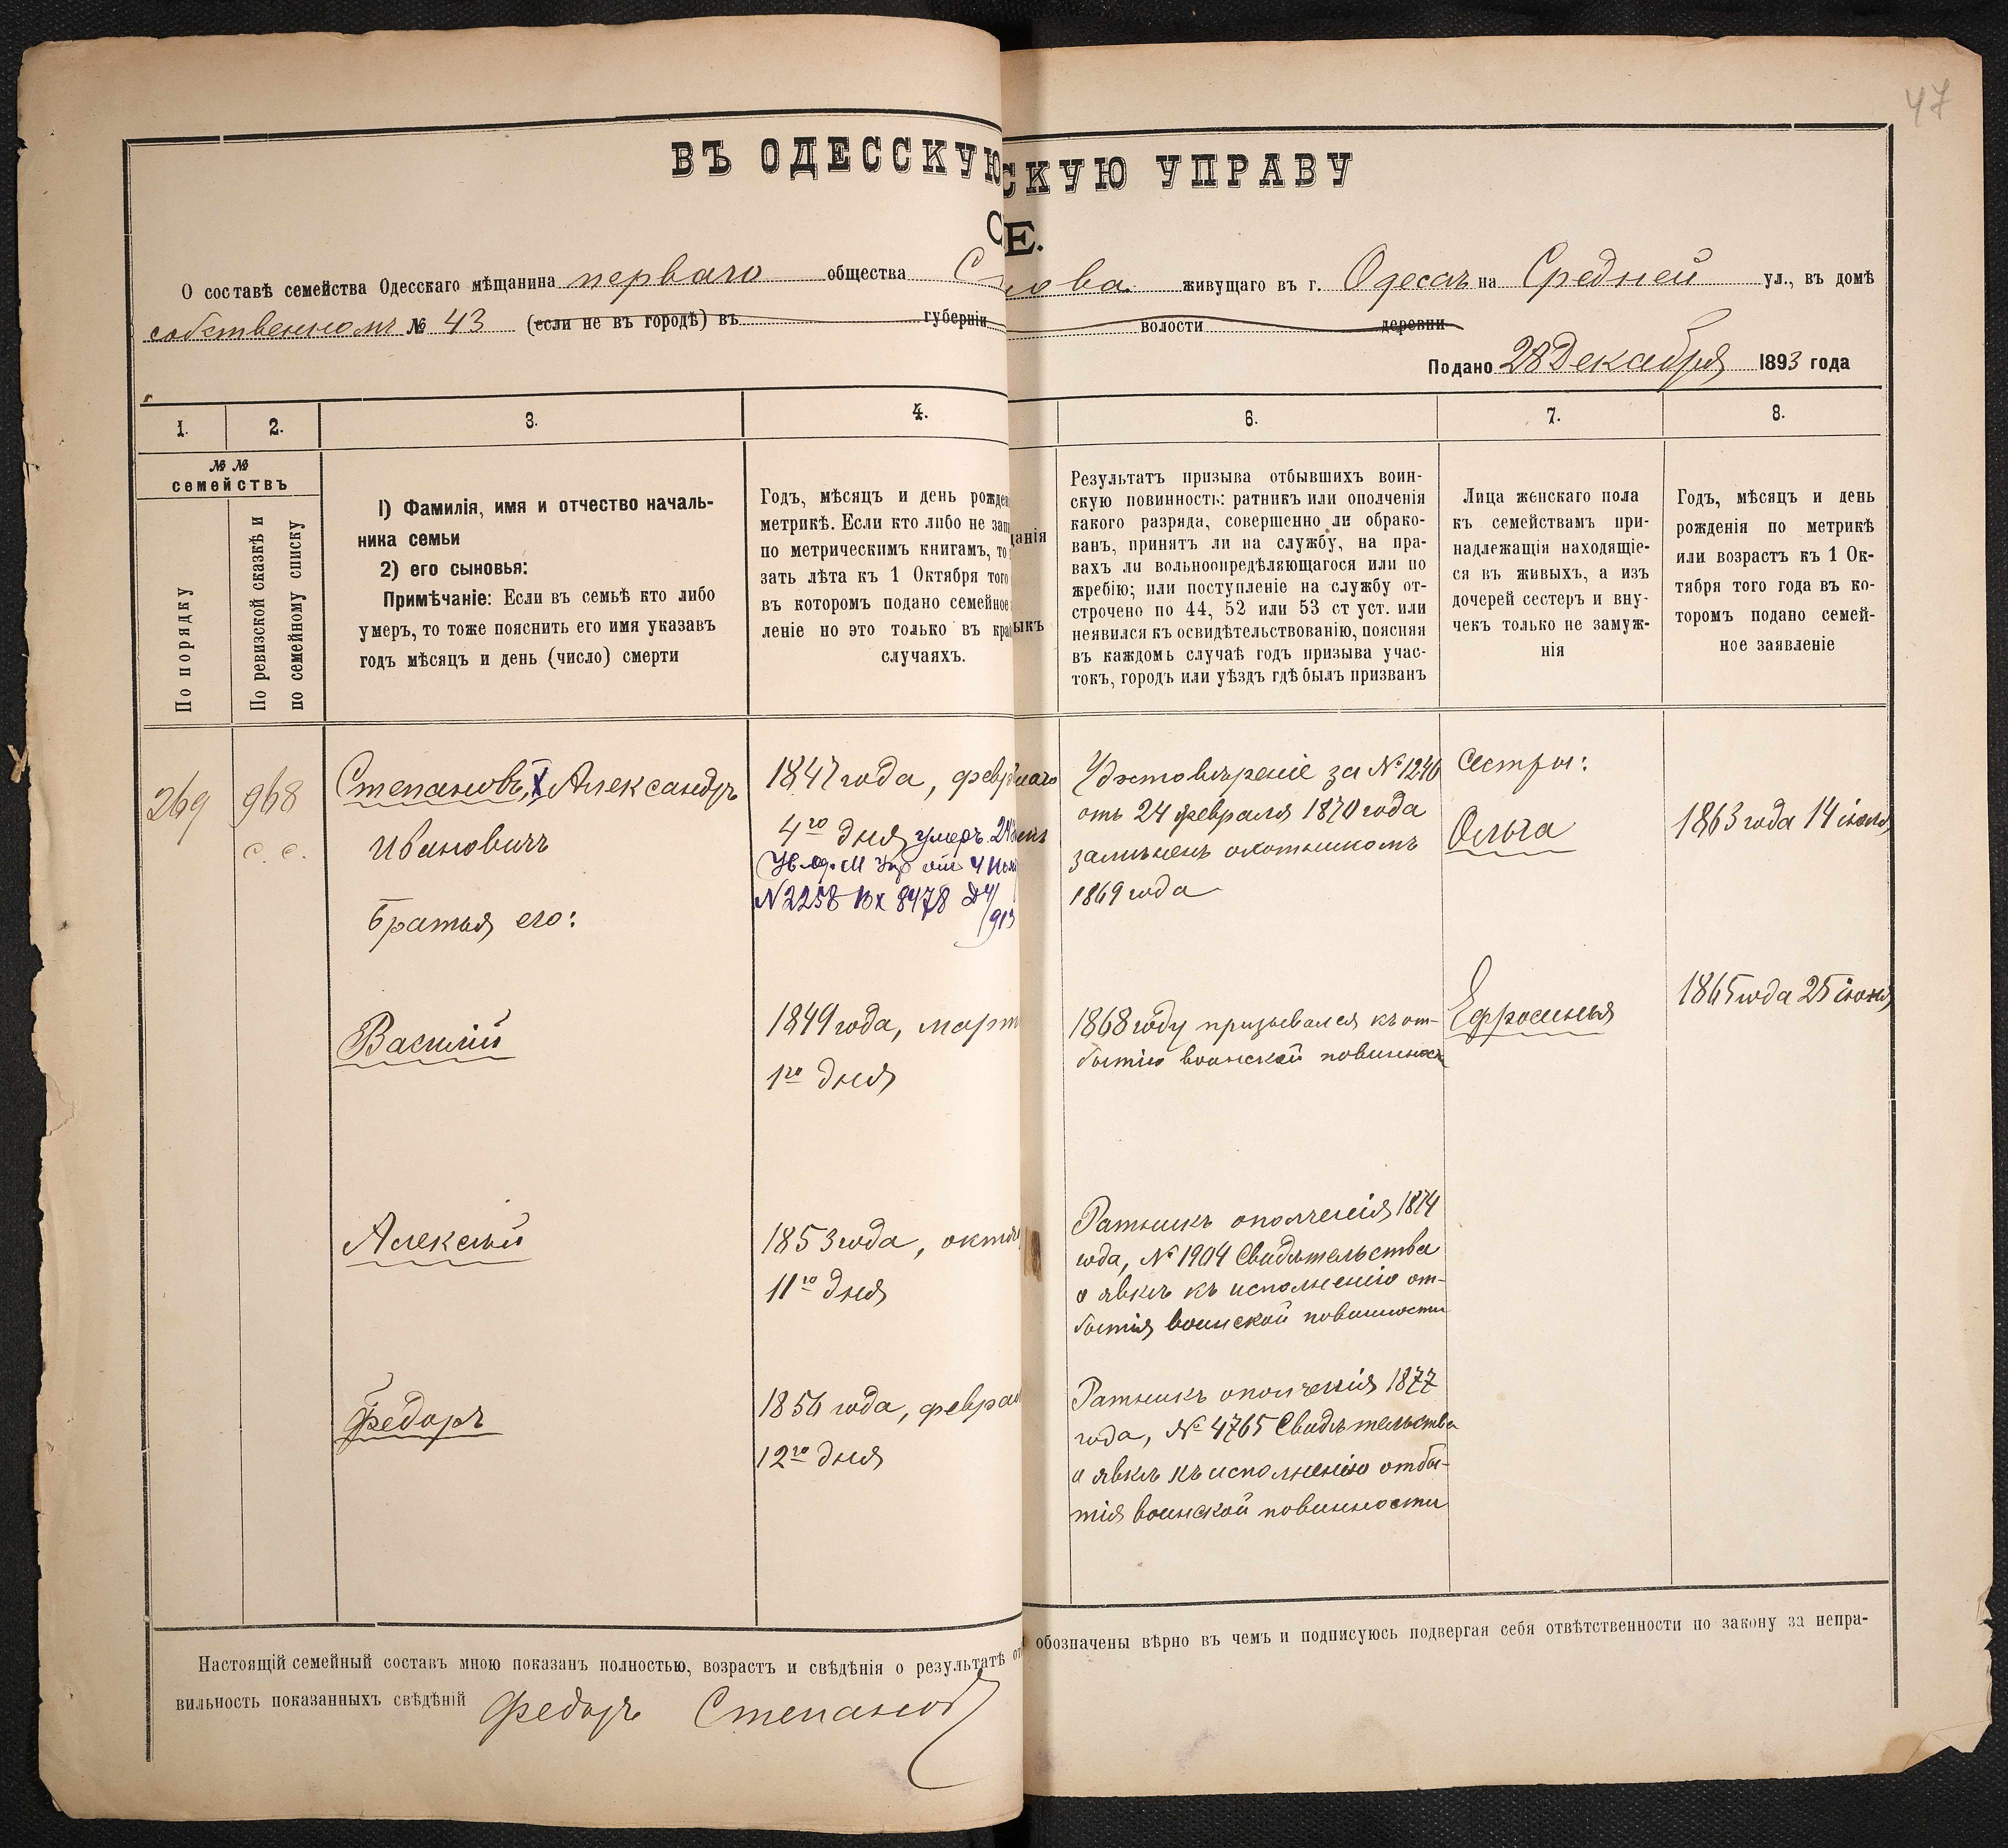 47
ВЪ ОДЕССКУЮ СКУЮ УПРАВУ
Е.
О составѣ семейства Одесскаго мѣщанина перваго общества С ова живущаго въ г. Одессѣ на Средней ул., въ домѣ
собственномъ № 43 (если не въ городѣ) въ губерніи волости деревни
Подано 28 Декабря 1893 года
1. 2. 3. 4. 6. 7. 8.
№ №
семействъ
По порядку
По ревизской сказкѣ и
по семейному списку
1) Фамилія, имя и отчество началь-
ника семьи
2) его сыновья:
Примѣчаніе: Если въ семьѣ кто либо
умеръ, то тоже пояснить его имя указавъ
годъ мѣсяцъ и день (число) смерти
Годъ, мѣсяцъ и день рожде
метрикѣ. Если кто либо не зап
по метрическимъ книгамъ, то
зать лѣта къ 1 Октября того
въ которомъ подано семейное
леніе но это только въ кра
случаяхъ.
данія
ыкъ
Результатъ призыва отбывшихъ воин-
скую повинность: ратникъ или ополченія
какого разряда, совершенно ли обрако-
ванъ, принятъ ли на службу, на пра-
вахъ ли вольноопредѣляющагося или по
жребію; или поступленіе на службу от-
строчено по 44, 52 или 53 ст уст. или
неявился къ освидѣтельствованію, поясняя
въ каждомъ случаѣ годъ призыва учас-
токъ, городъ или уѣздъ гдѣ былъ призванъ
Лица женскаго пола
къ семействамъ при-
надлежащія находящіе-
ся въ живыхъ, а изъ
дочерей сестеръ и вну-
чекъ только не замуж-
нія
Годъ, мѣсяцъ и день
рожденія по метрикѣ
или возрастъ къ 1 Ок-
тября того года въ ко-
торомъ подано семей-
ное заявленіе
269
968
с. с.
Степановъ, Александръ
Ивановичъ
братья его:
1847 года, февр
4го дня умеръ
от 4
N 2258 Вх 8478
913
Удостовѣреніе за № 1246
отъ 24 февраля 1870 года
замѣненъ охотникомъ
1869 года
Сестры:
Ольга
1863 года 14
Василій
1849 года, март
1го дня
1868 году призывался къ от-
бытію воинской повинност
Ефросинья
1865 года 25
Алексѣй
1853 года, октя
11го дня
Ратникъ ополченія 1874
года, № 1904 Свидѣтельства
о явкѣ къ исполненію от-
бытія воинской повинности
Ѳедоръ
1856 года, февра
12го дня
Ратникъ ополченія 1877
года, № 4765 Свидѣтельства
о явкѣ къ исполненію отбы-
тія воинской повинности
Настоящій семейный составъ мною показанъ полностью, возрастъ и свѣдѣнія о результатѣ от обозначены вѣрно въ чемъ и подписуюсь подвергая себя отвѣтственности по закону за непра-
вильность показанныхъ свѣдѣній Федоръ Степановъ